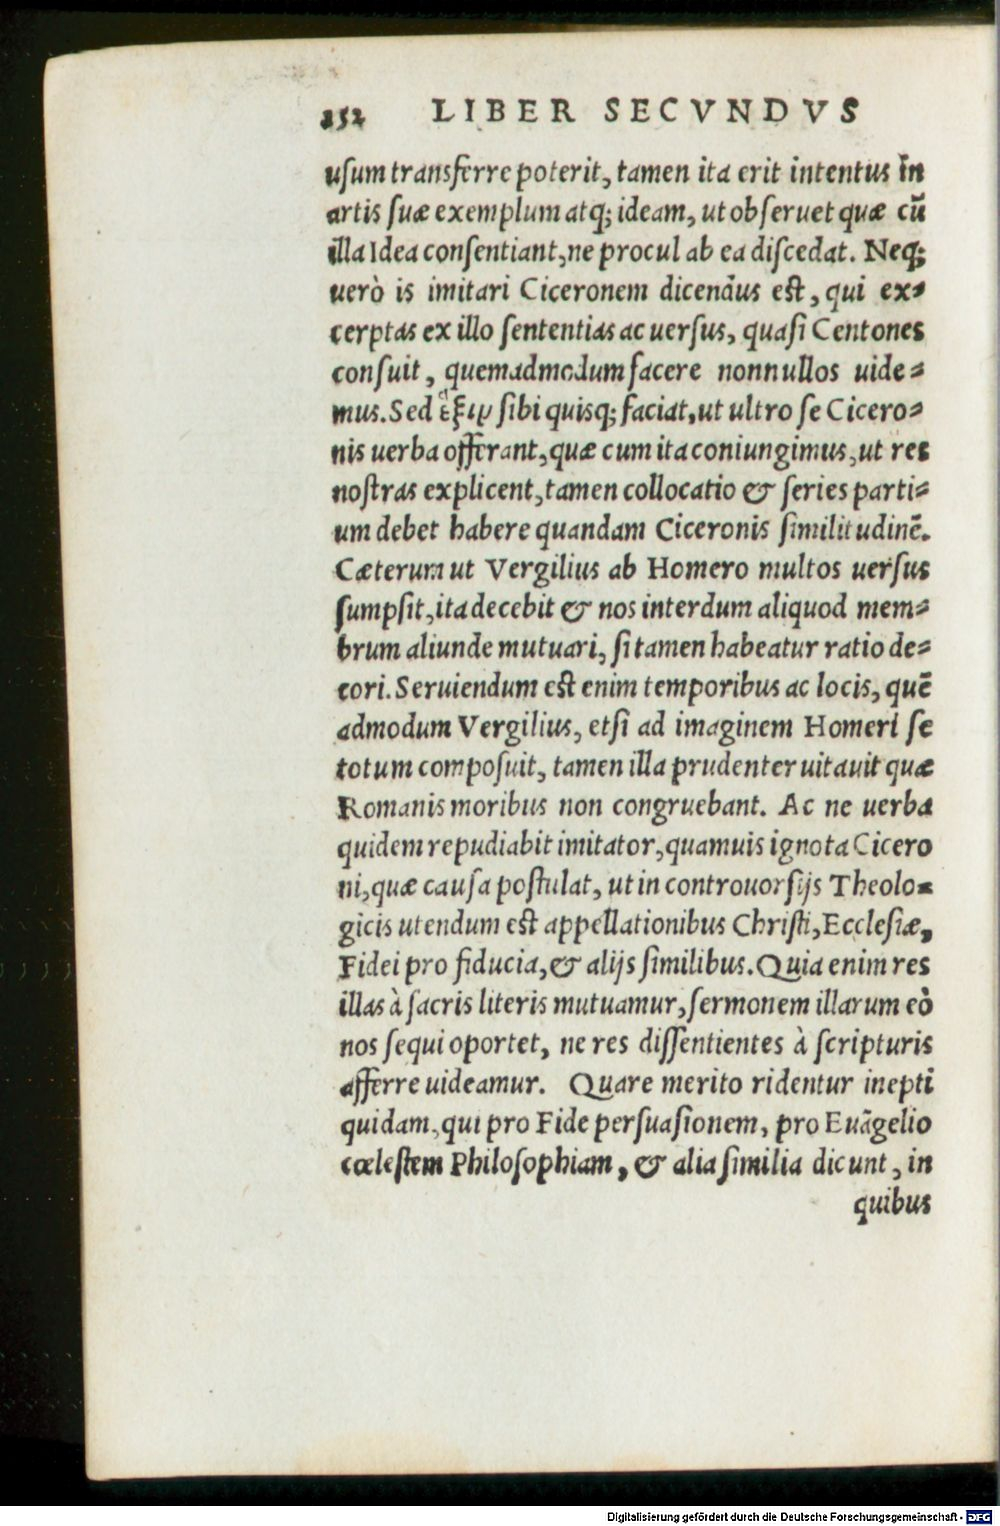 252 LIBER SECVNDVS
usum transferre poterit, tamen ita erit intentus in
artis suæ exemplum atq; ideam, ut obseruet quæ cū
illa Idea consentiant, ne procul ab ea discedat. Neq;
uerò is imitari Ciceronem dicendus est, qui ex-
cerptas ex illo sententias ac uersus, quasi Centones
consuit, quemadmodum facere nonnullos uide-
mus. Sed ἕξιν sibi quisq; faciat, ut ultro se Cicero-
nis uerba offerant, quæ cum ita coniungimus, ut res
nostras explicent, tamen collocatio & series parti-
um debet habere quandam Ciceronis similitudinē.
Cæterum ut Vergilius ab Homero multos uersus
sumpsit, ita decebit & nos interdum aliquod mem-
brum aliunde mutuari, si tamen habeatur ratio de-
cori. Seruiendum est enim temporibus ac locis, quē
admodum Vergilius, etsi ad imaginem Homeri se
totum composuit, tamen illa prudenter uitauit quæ
Romanis moribus non congruebant. Ac ne uerba
quidem repudiabit imitator, quamuis ignota Cicero
ni, quæ causa postulat, ut in controuorsijs Theolo-
gicis utendum est appellationibus Christi, Ecclesiæ,
Fidei pro fiducia, & alijs similibus. Quia enim res
illas à sacris literis mutuamur, sermonem illarum eò
nos sequi oportet, ne res dissentientes à scripturis
afferre uideamur. Quare merito ridentur inepti
quidam, qui pro Fide persuasionem, pro Euāgelio
cœlestem Philosophiam, & alia similia dicunt, in
quibus
Digitalisierung gefördert durch die Deutsche Forschungsgemeinschaft - DFG